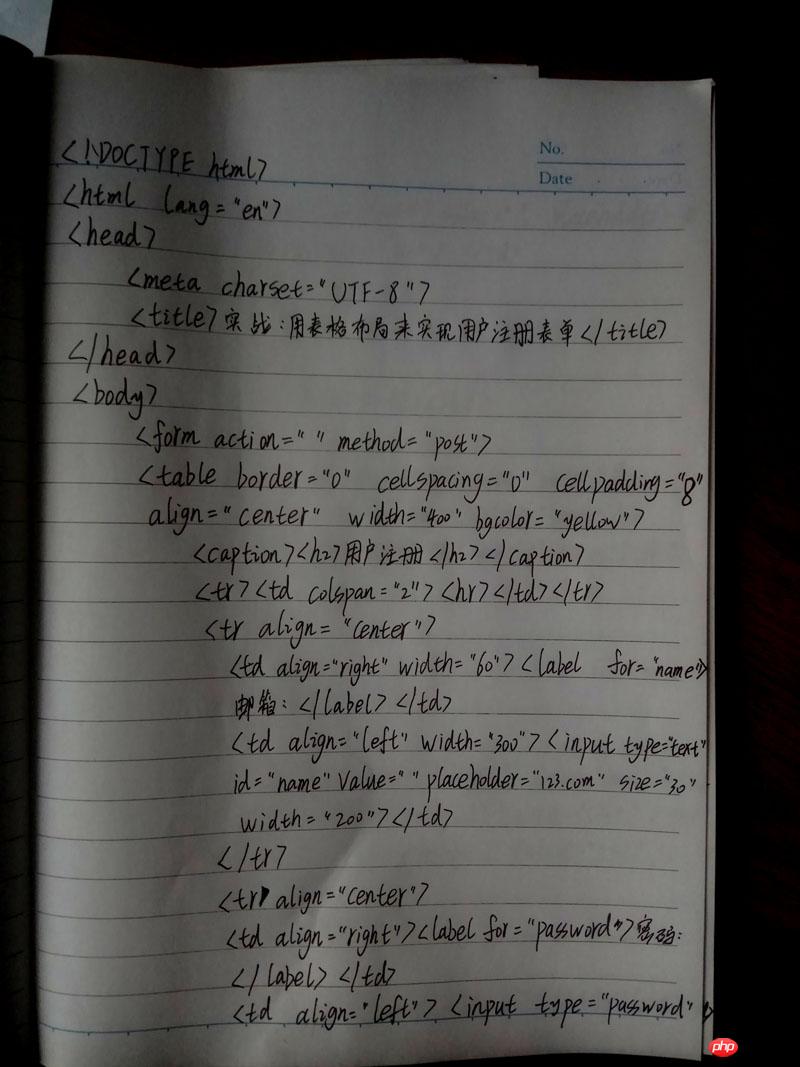 No.
Date
<!DOCTYPE html>
<html lang="en">
<head>
<meta charset="UTF-8">
<title>实战:用表格布局来实现用户注册表单</title>
</head>
<body>
<form action=" " method="post">
<table border="0" cellspacing="0" cellpadding="8"
align="center" width="400" bgcolor="yellow">
<caption><h2>用户注册</h2></caption>
<tr><td colspan="2"><hr></td></tr>
<tr align="center">
<td align="right" width="60"><label for="name">
邮箱:</label></td>
<td align="left" width="300"><input type="text"
id="name" Value=" " placeholder="123.com" size="30"
width="200"></td>
</tr>
<tr align="center">
<td align="right"><label for="password">密码:
</label></td>
<td align="left"><input type="password"
php